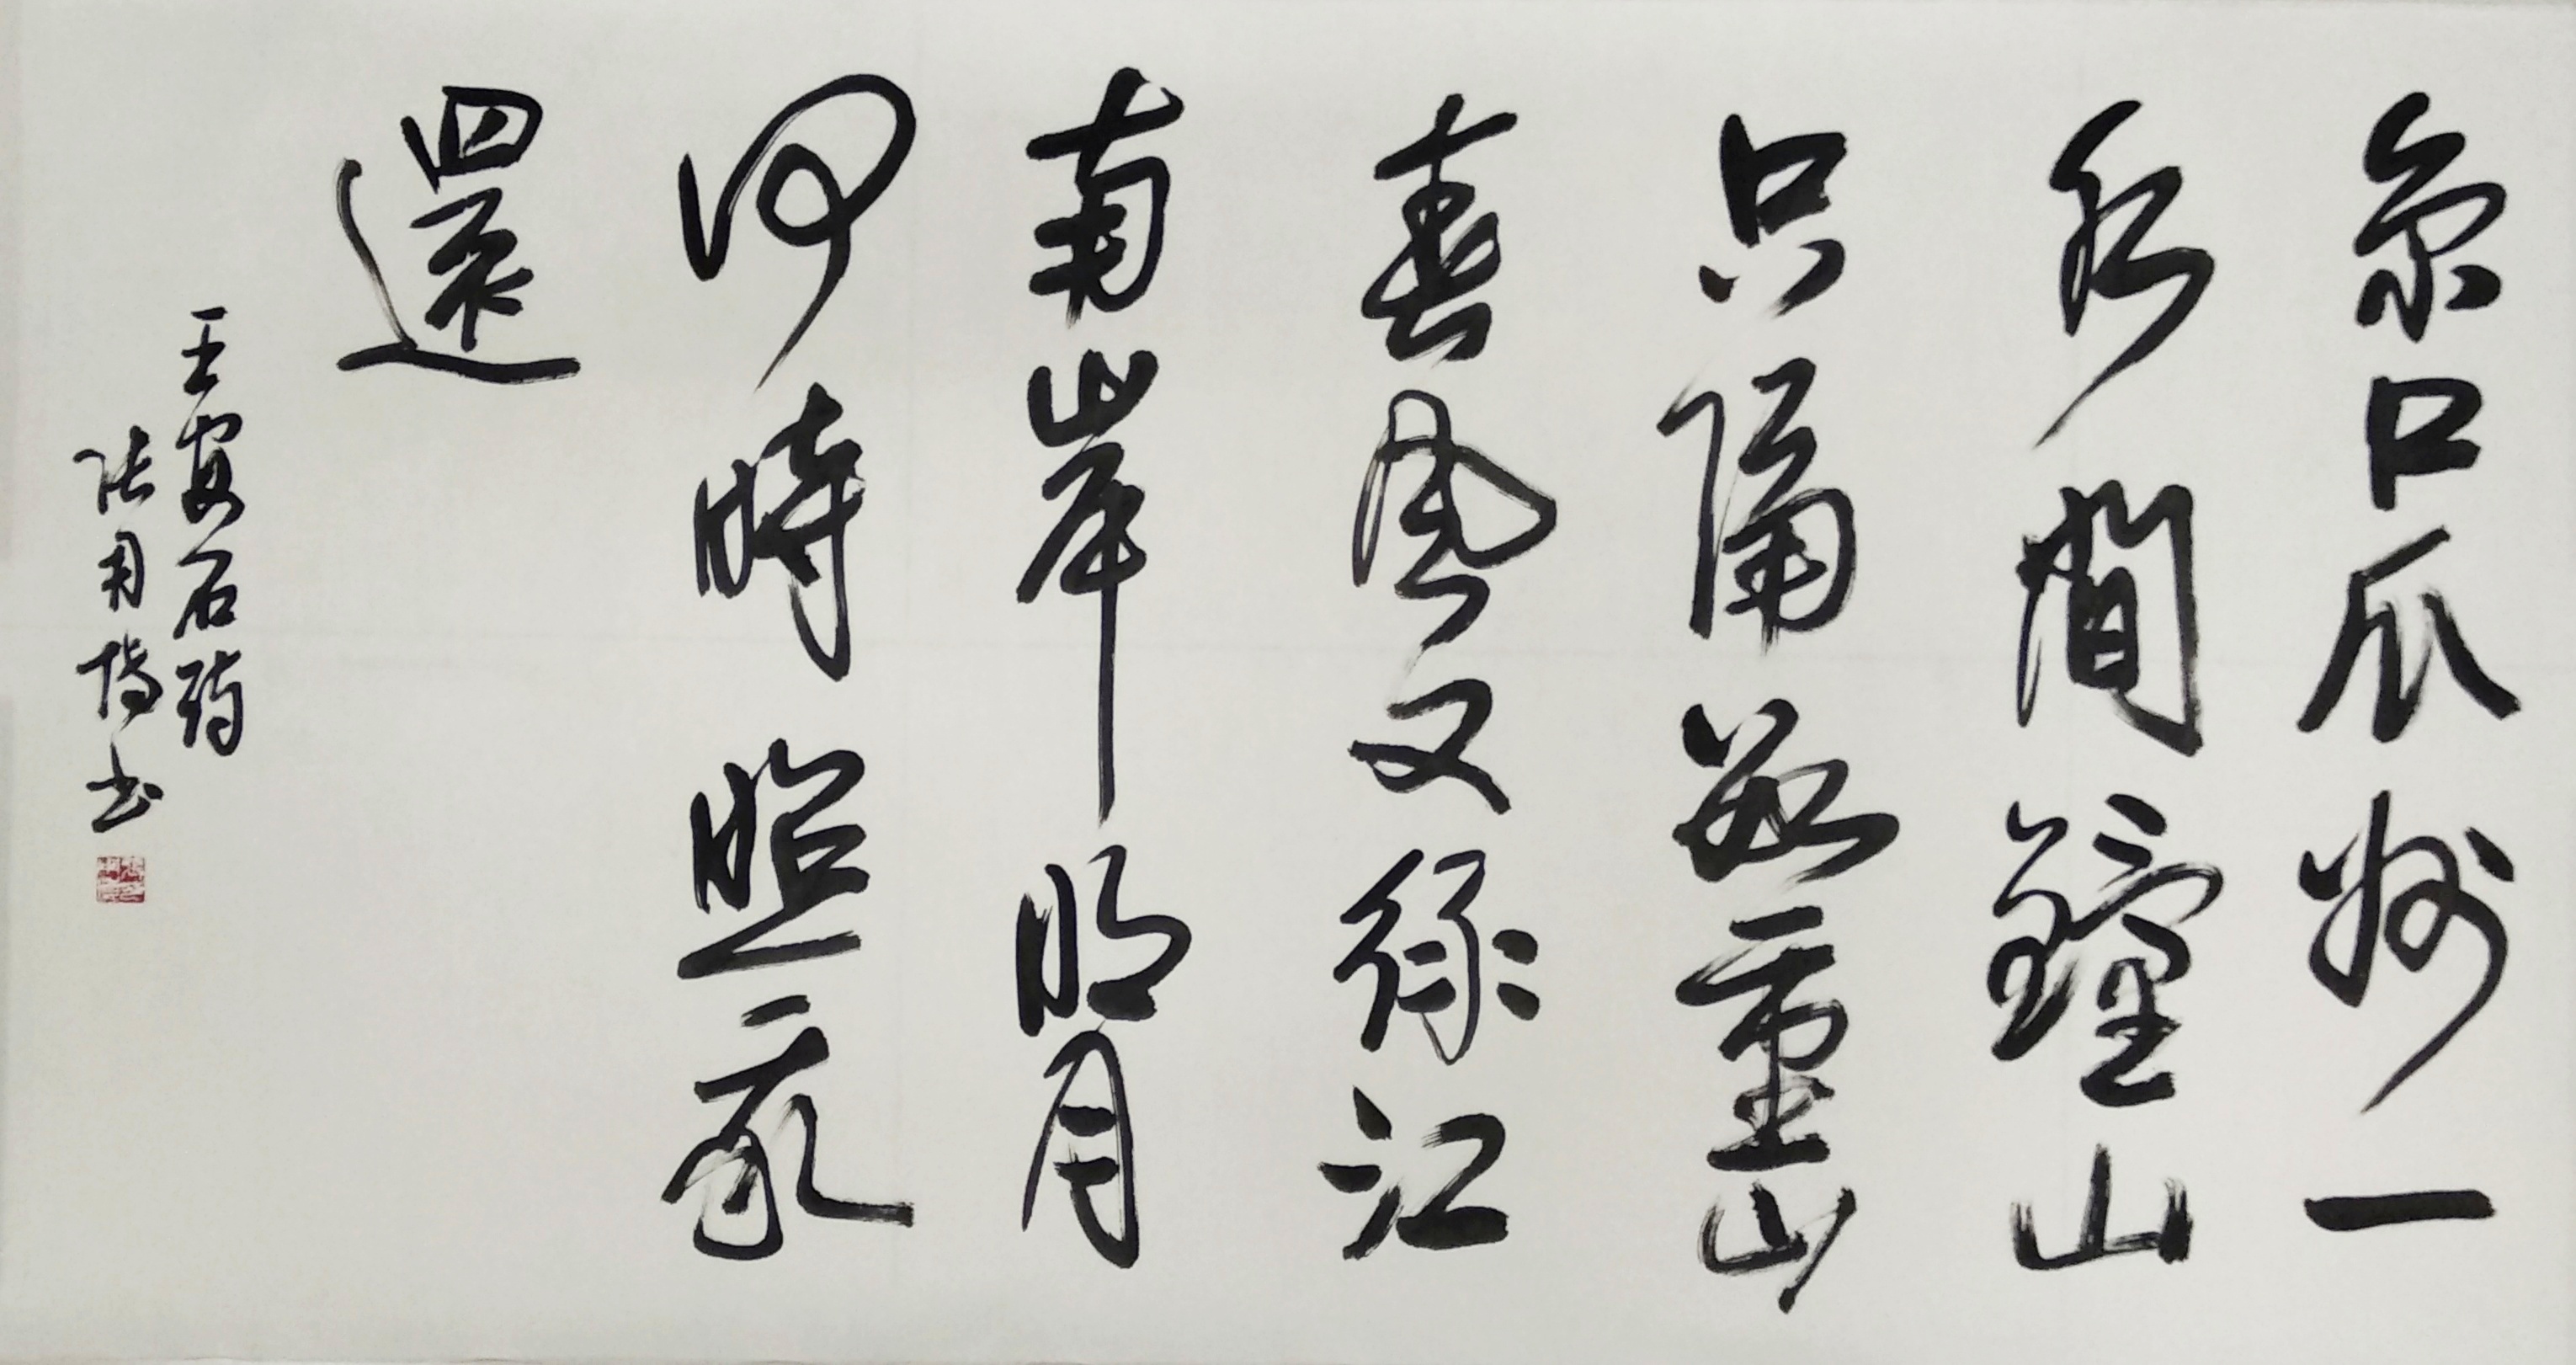 京口瓜州一
水間鐘山
只隔數重山
春風又綠江
南岸明月
何時照我
還
王安石詩
張用博書